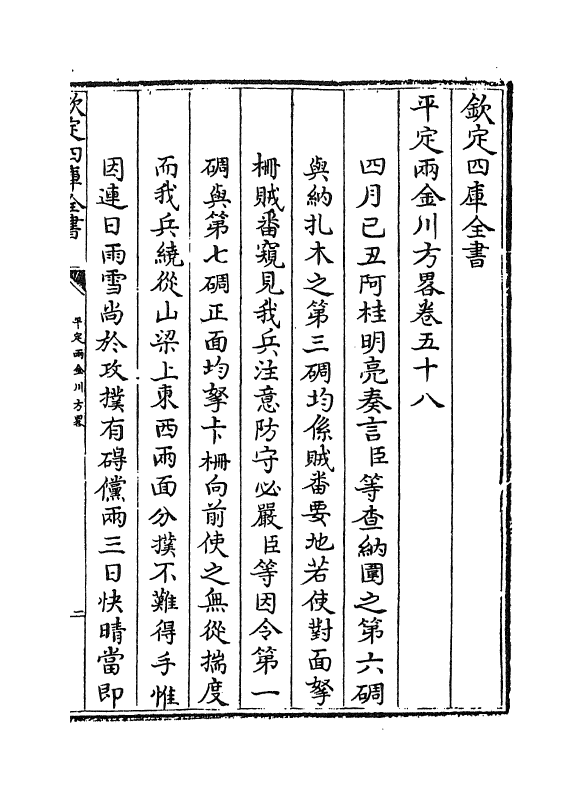 欽定四庫全書
平定兩金川方畧卷五十八
四月己丑阿桂明亮奏言臣等查納圍之第六碉
與納扎木之第三碉均係賊番要地若使對面拏
柵賊番窺見我兵注意防守必嚴臣等因令第一
碉與第七碉正面均拏卡柵向前使之無從揣度
而我兵繞從山梁上東西兩面分撲不難得手惟
因連日雨雪尚於攻撲有碍儻兩三日快晴當即
欽定四庫全書
平定兩金川方畧
二